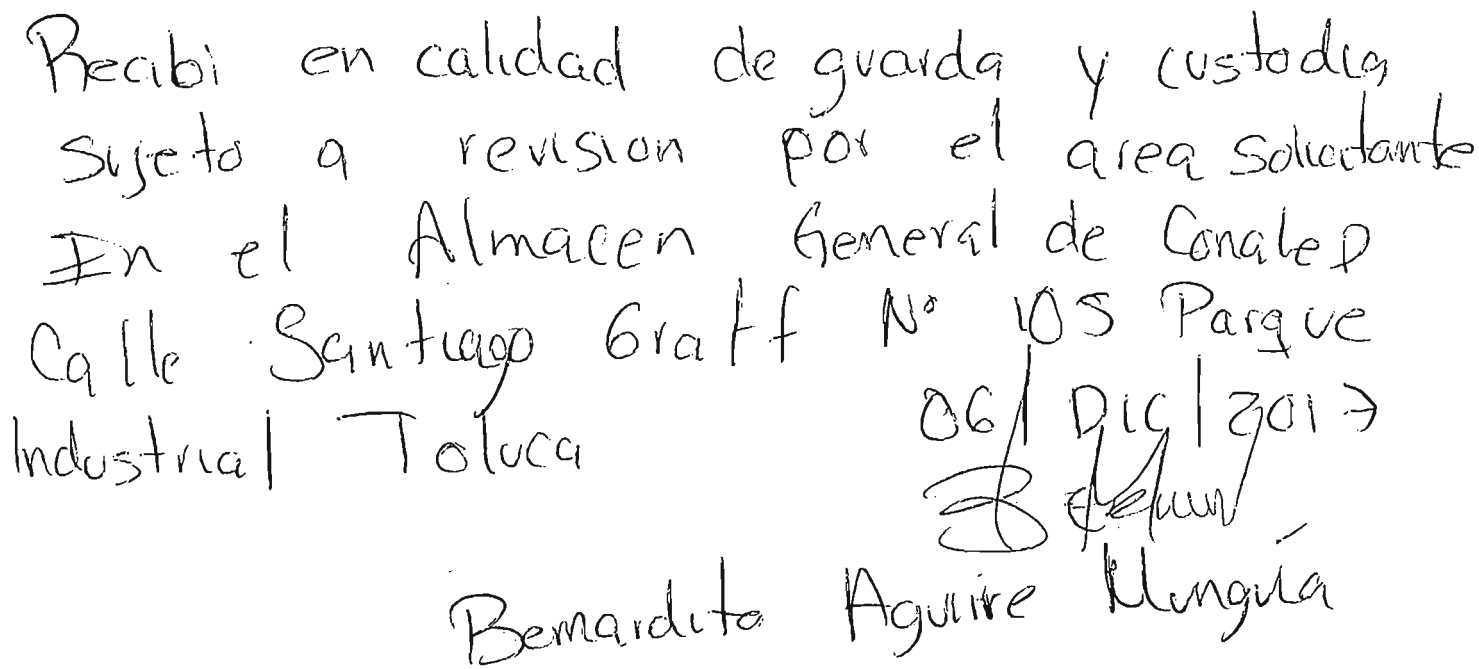 Recibi en calidad de guarda y custodia
sujeto a revision por el area solicitante
En el Almacen General de Conalep
Calle Santiago Graff N° 105 Parque
Industrial Toluca
06/DIC/2017
Bernardito Aguirre Munguía